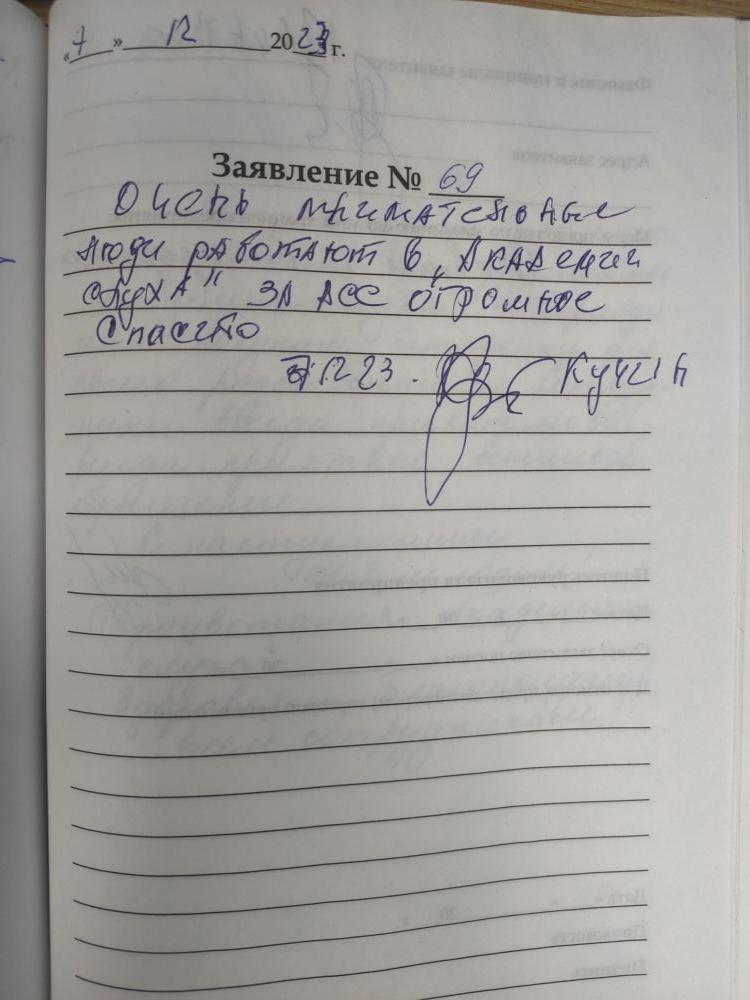 «7» 12 2023 г.
Заявление № 69
Очень внимательные
люди работают в „Академии
слуха" за все огромное
спасибо
7 12 23. Кучин